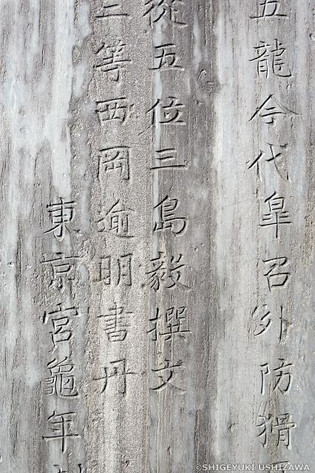 五龍今代皐召外防猾
從五位三島毅撰文
三等西岡逾明書丹
東京宮龜年
©SHIGEYUKI USHIZAWA